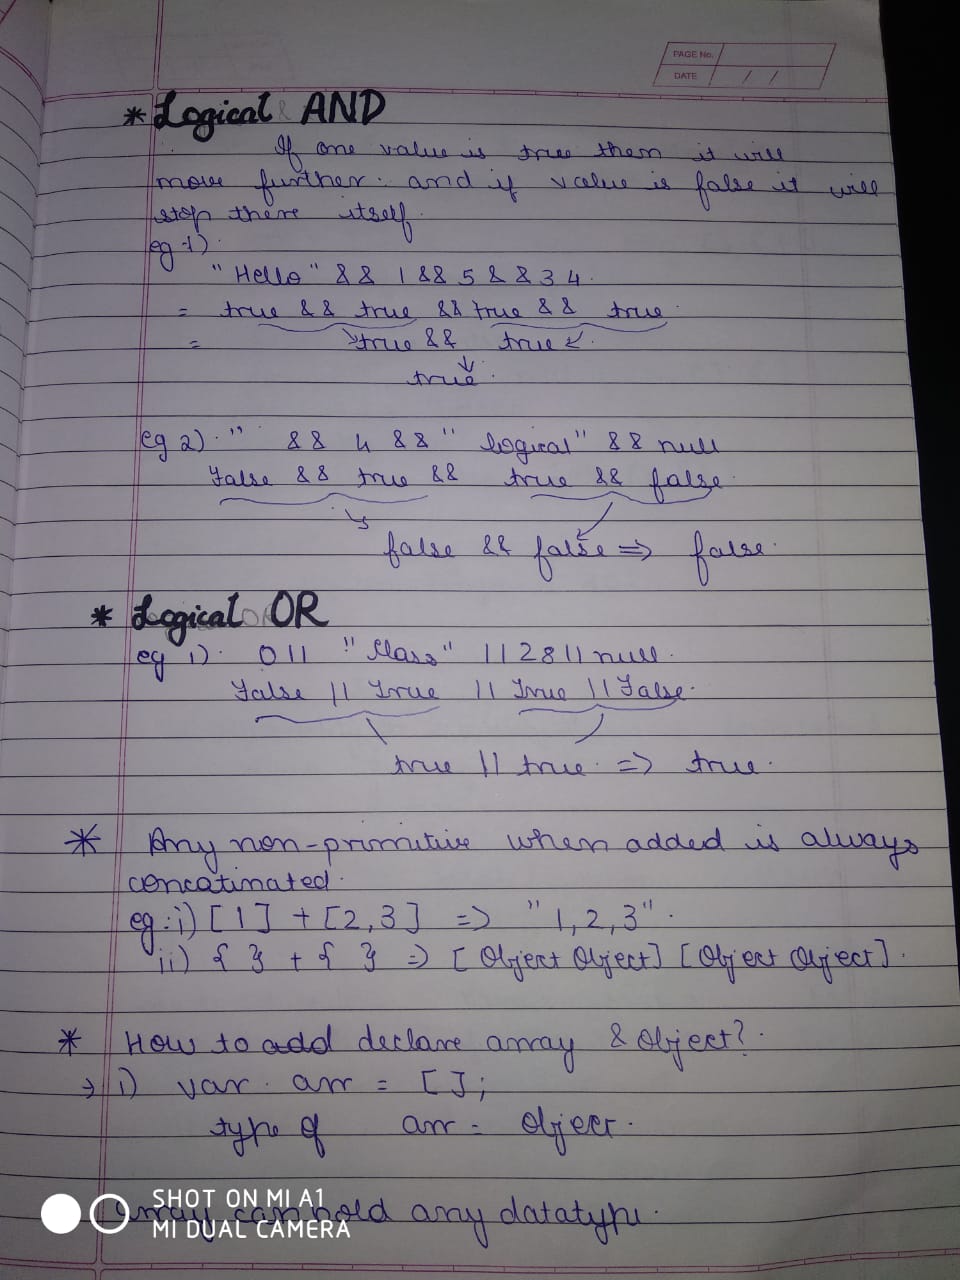 PAGE No.
DATE / /
* Logical AND
If one value is true them it will
move further. and if value is false it will
stop there itself.
eg-1)
"Hello" && 1 && 5 && 34.
= true && true && true && true.
= true && true.
true.
eg 2). " && 4 && " logical" && null
False && true && true && false.
false && false => false.
* Logical OR
eg 1). 0 || " " || 28 || null.
False || True || True || False.
true || true. => true.
* Any non-primitive when added is always
concatinated.
eg:i) [1] + [2,3] => "1,2,3".
ii) { } + { } => [Object Object] [Object Object].
* How to add declare array & Object?.
→ i) var. arr = [];
type of arr = Object.
array can hold any datatype.
SHOT ON MI A1
MI DUAL CAMERA